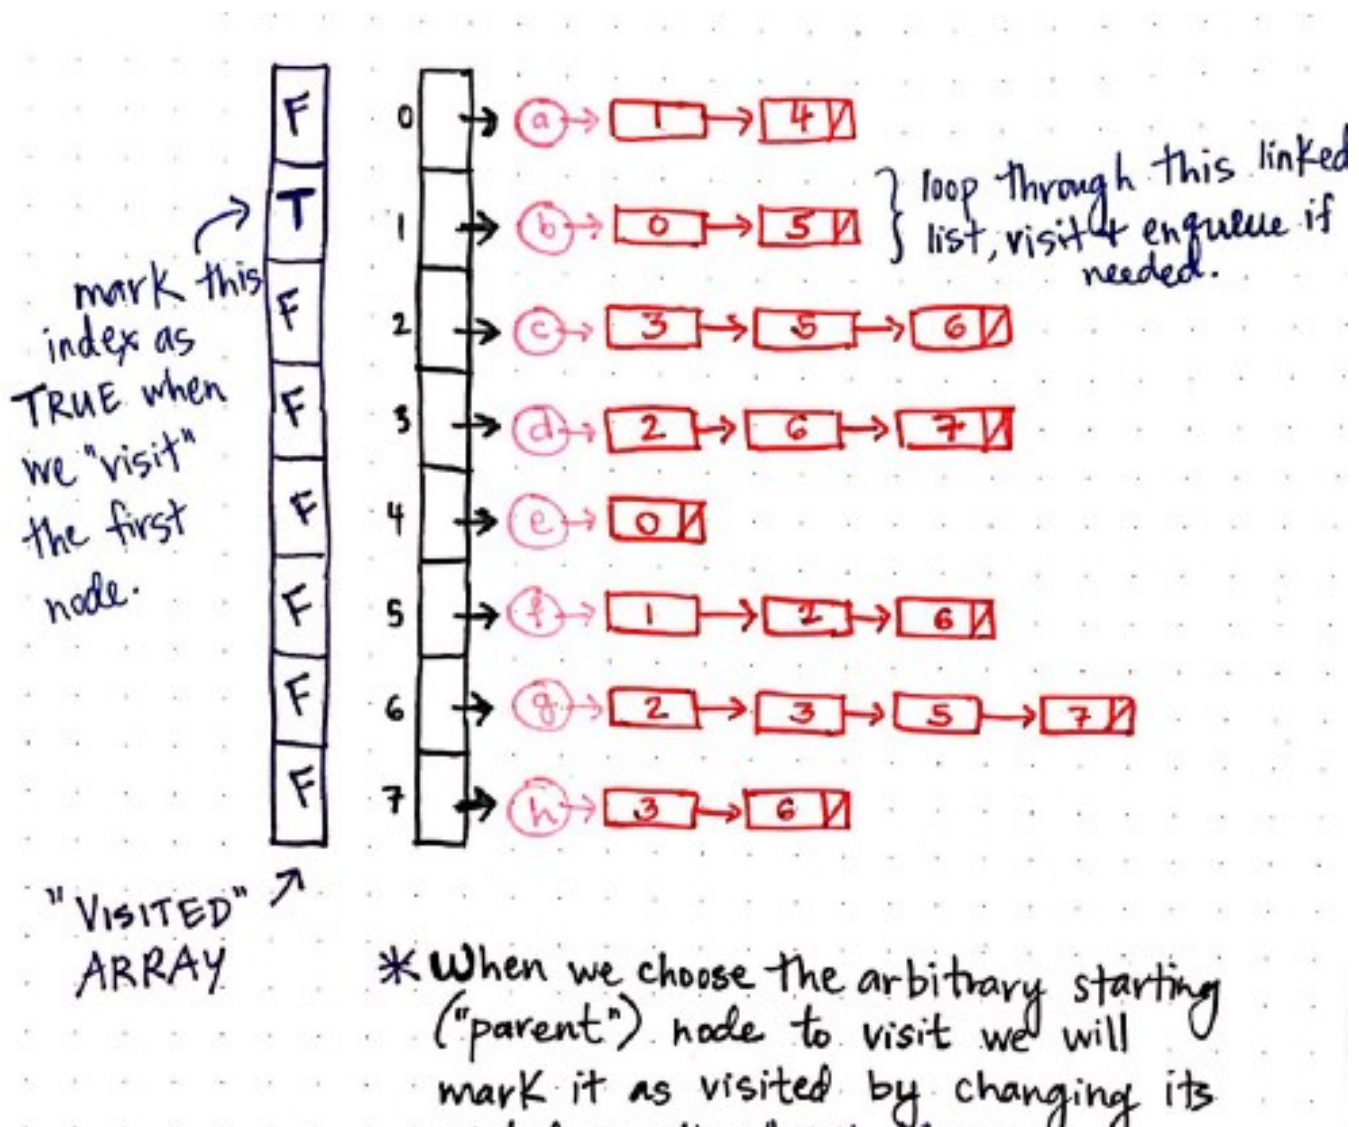 F
T
F
F
F
F
F
F
mark this
index as
TRUE when
we "visit"
the first
node.
"VISITED"
ARRAY
0 a 1 4
1 b 0 5
2 c 3 5 6
3 d 2 6 7
4 e 0
5 f 1 2 6
6 g 2 3 5 7
7 h 3 6
loop through this linked
list, visit + enqueue if
needed.
* When we choose the arbitrary starting
("parent") node to visit we will
mark it as visited by changing its